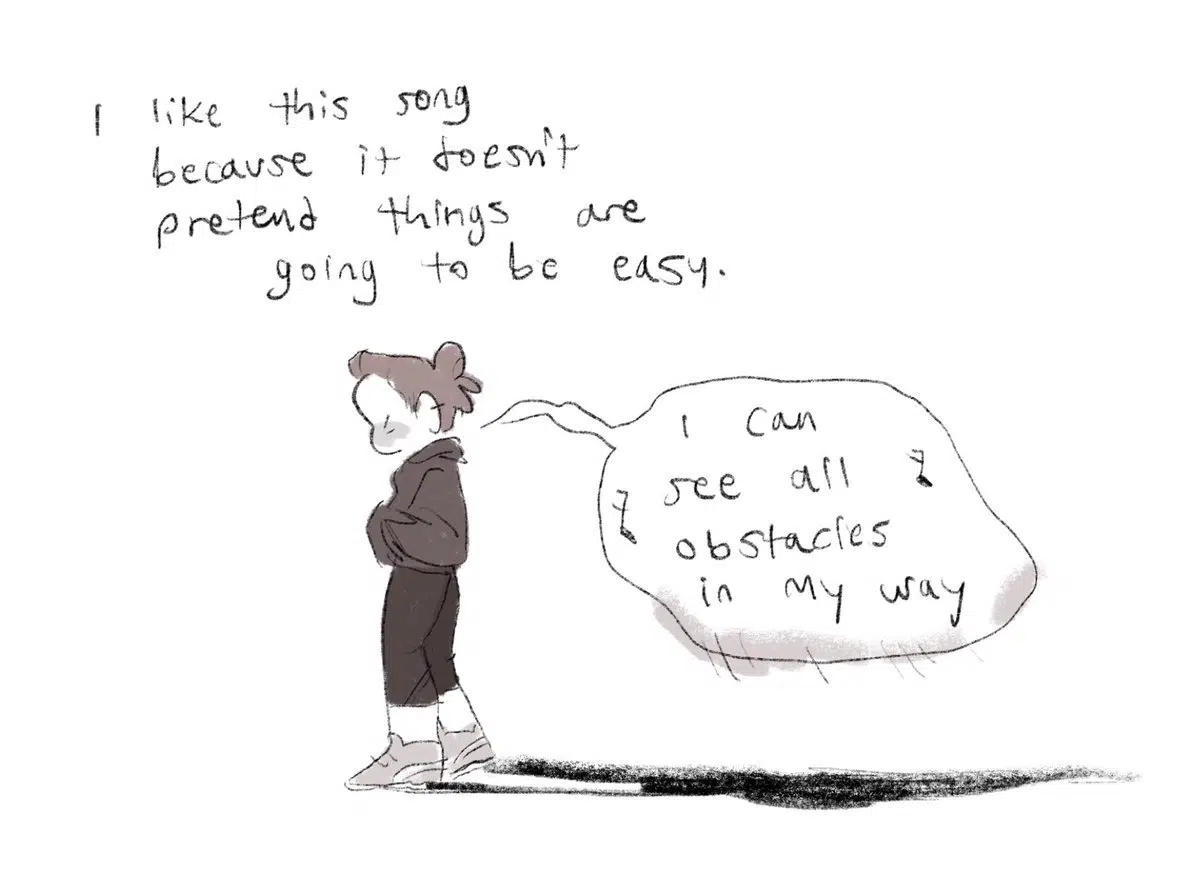 I like this song
because it doesn't
pretend things are
going to be easy.
I can
see all
obstacles
in my way